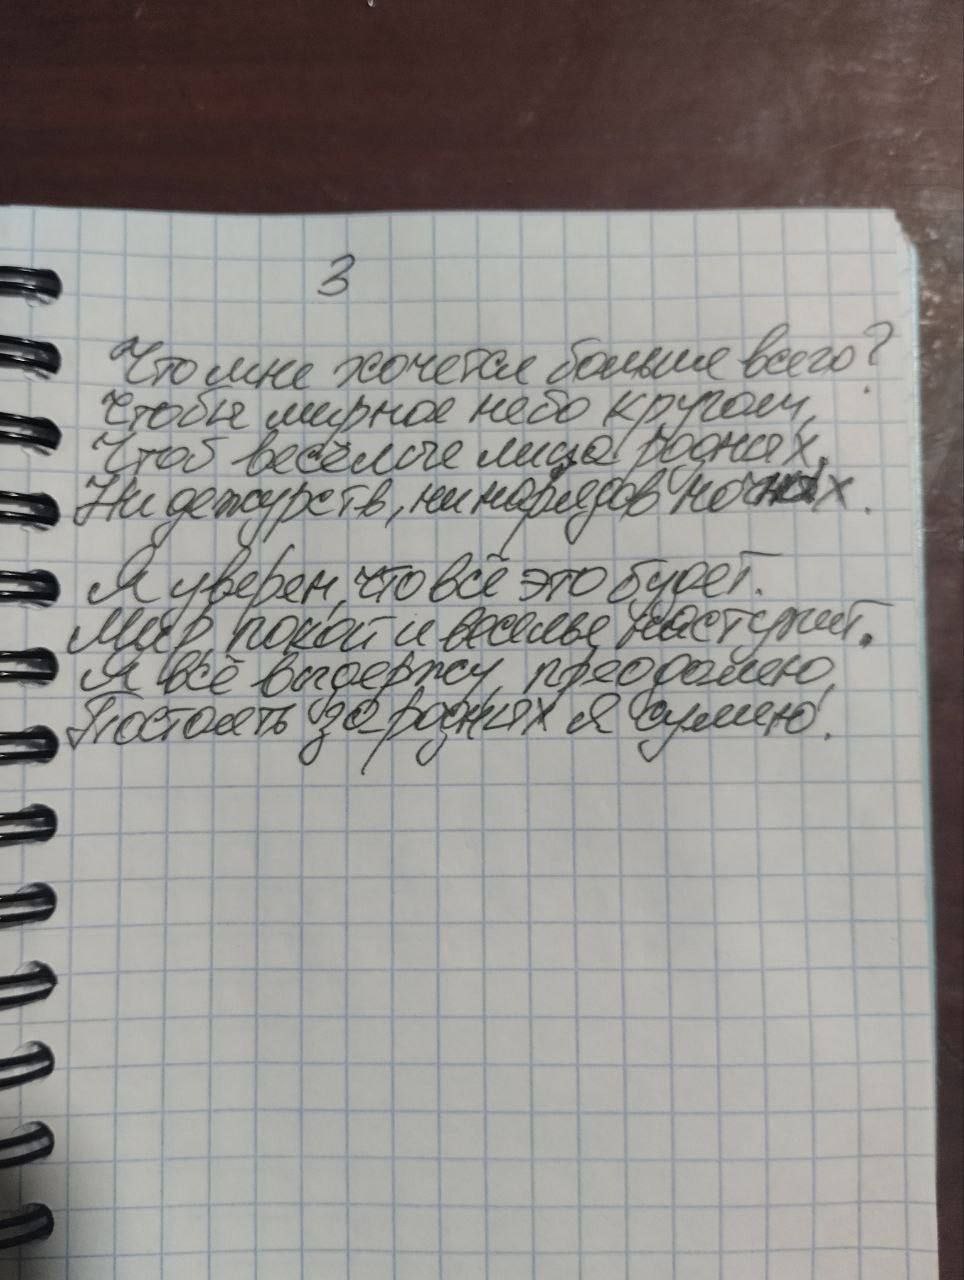 3
Что мне хочется больше всего?
Чтобы мирное небо кругом,
Чтоб весёлые лица родных,
Ни дежурств, ни нарядов ночных.
Я уверен, что всё это будет.
Мир, покой и веселье наступит.
Я всё выдержу, преодолею,
Постоять за родных я сумею!